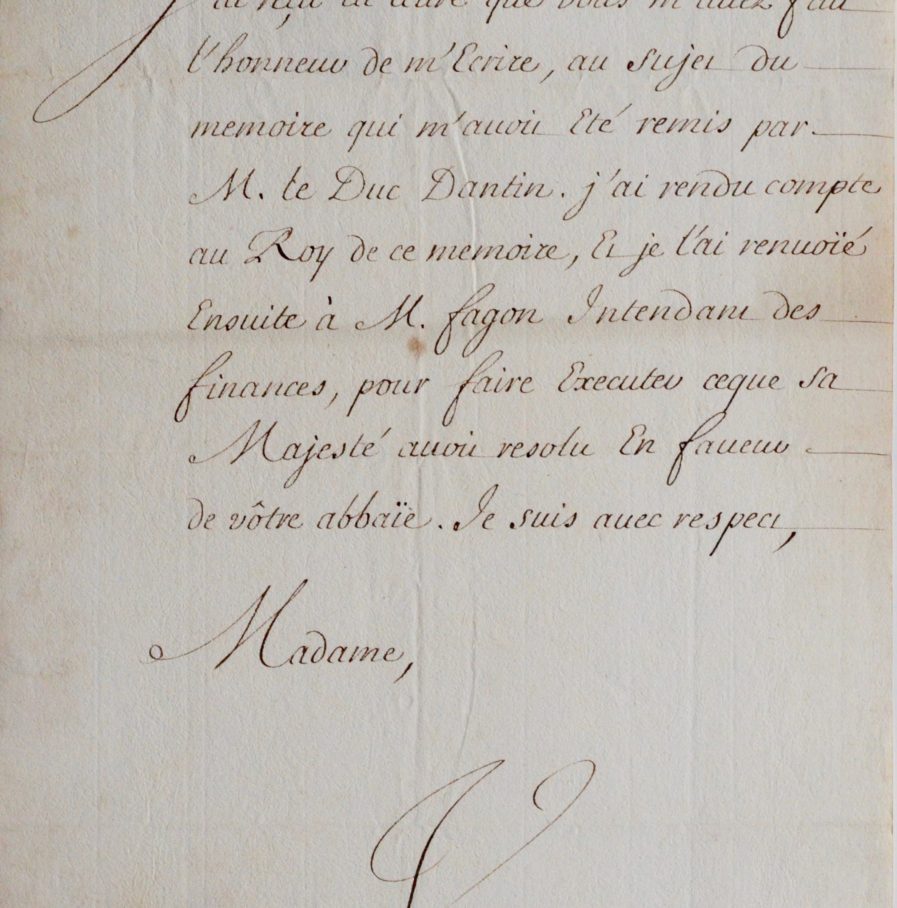 J'ai reçu la lettre que vous m'avez fait
l'honneur de m'Ecrire, au sujet du
memoire qui m'avoit Eté remis par
M. le Duc Dantin. j'ai rendu compte
au Roy de ce memoire, Et je l'ai renvoïé
Ensuite à M. fagon Intendant des
finances, pour faire Executer ceque sa
Majesté avoit resolu En faveur
de vôtre abbaïe. Je suis avec respect,
Madame,
V